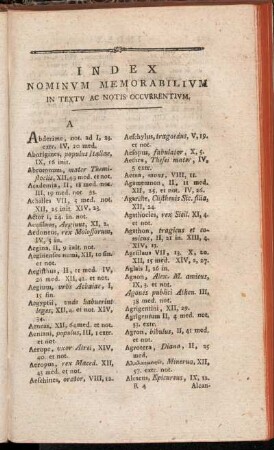 INDEX
NOMINVM MEMORABILIVM
IN TEXTV AC NOTIS OCCVRRENTIVM.
A
Abdomine, not. ad I, 28.
extr. IV, 20 med.
Aborigines, populus Italiae,
IX, 16 init.
Abrotonum, mater Themi-
stoclis, XII, 43 med. et not.
Academia, II, 18 med. not.
III, 19 med.
Achilles VII, 5 med. not.
XII, 25 init. XIV, 23.
Actor I, 24. in not.
Aeacus, Aegineta, XII, 2.
rex Molossorum,
IV, 5 in.
Aegina, II, 9 init. not.
Aeginensis ibid. et not.
Aegisthus, II, 11 med. IV,
20 med. XII, 42 et not.
Aegium, urbs Achaiae, I,
15 fin.
Aegyptii, unde hauserint
leges, XII, 4. et not. XIV,
34.
Aeneas, XII, 64 med. et not.
Aeniani, populus, III, 1 extr.
et not.
Aerope, uxor Atrei, XIV,
40. et not.
Aeropus, rex Maced. XII,
43 med. et not.
Aeschines, orator, VIII, 12.
Aeschylus, tragoedus, V, 19.
et not.
Aesopus, fabulator, X, 5.
Aethra, Thesei mater, IV,
5 extr.
Aetna, mons, VIII, 11.
Agamemnon, II, 11 med.
XII, 25. et not. IV, 26.
Agariste, Clisthenis Sic. filia,
XII, 24.
Agathocles, rex Sicil. XI, 4
et not.
Agathon, tragicus et co-
micus, II, 21 in. XIII, 4.
XIV, 13.
Agesilaus VII, 13. X, 20.
XII, 15 med. XIV, 2. 27.
Aglais I, 26 in.
Agnon, Alex. M. amicus,
IX, 3. et not.
Agones publici Athen. III,
38 med. not.
Agrigentini, XII, 29.
Agrigentum II, 4 med. not.
33. extr.
Agron, bibulus, II, 41 med.
et not.
Agrotera, Diana, II, 25
med.
Minerva, XII,
57. extr. not.
Alcaeus, Epicureus, IX, 12.
S 4 Alcan-